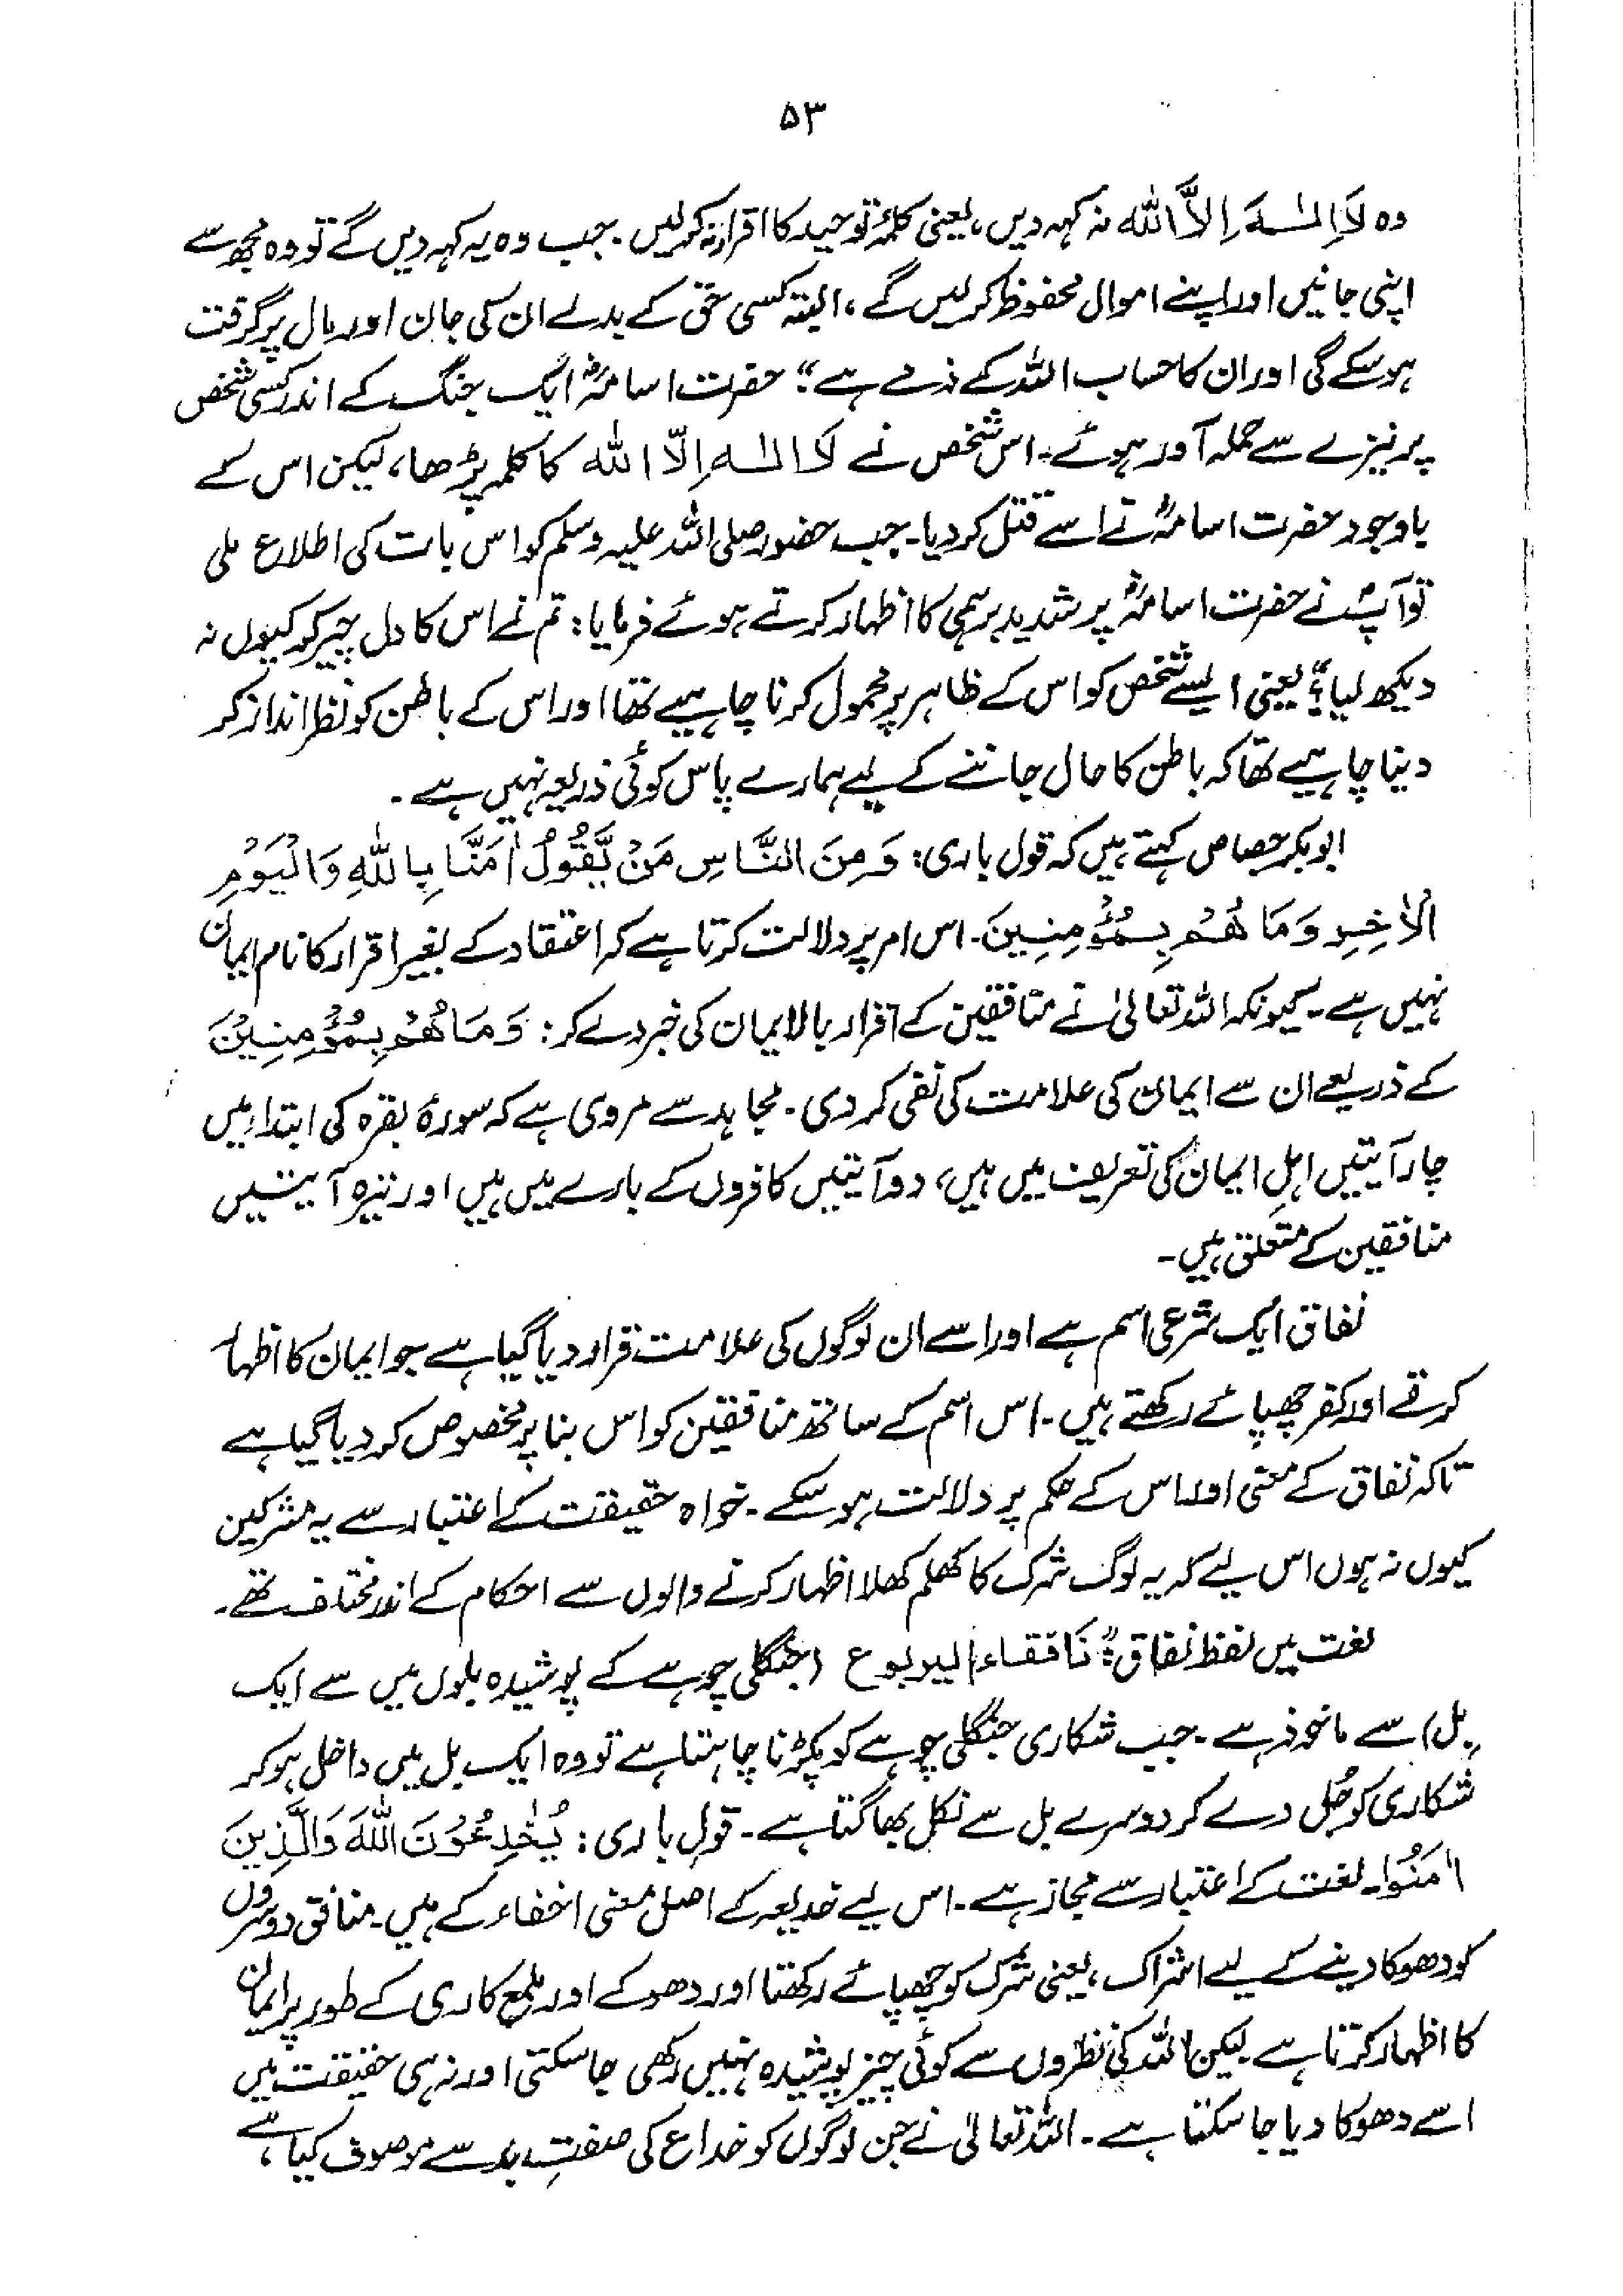 ۵۳
وہ لَا اِلٰـہَ اِلَّا اللہ نہ کہہ دیں، یعنی کلمۂ توحید کا اقرار نہ کر لیں۔ جب وہ یہ کہہ دیں گے تو وہ مجھ سے
اپنی جانیں اور اپنے اموال محفوظ کر لیں گے، البتہ کسی حق کے بدلے ان کی جان اور مال پر گرفت
ہو سکے گی اور ان کا حساب اللہ کے ذمے ہے"؛ حضرت اسامہؓ ایک جنگ کے اندر کسی شخص
پر نیزے سے حملہ آور ہوئے۔ اس شخص نے لَا الٰـہ اِلّا اللہ کا کلمہ پڑھا، لیکن اس کے
باوجود حضرت اسامہؓ نے اسے قتل کر دیا۔ جب حضور صلی اللہ علیہ وسلم کو اس بات کی اطلاع ملی
تو آپؐ نے حضرت اسامہؓ پر شدید برہمی کا اظہار کرتے ہوئے فرمایا: تم نے اس کا دل چیر کر کیوں نہ
دیکھ لیا؟" یعنی ایسے شخص کو اس کے ظاہر پر محمول کرنا چاہیے تھا اور اس کے باطن کو نظر انداز کر
دینا چاہیے تھا کہ باطن کا حال جاننے کے لیے ہمارے پاس کوئی ذریعہ نہیں ہے۔
ابوبکر جصاص کہتے ہیں کہ قول باری: وَمِنَ النَّاسِ مَنْ یَّقُوْلُ اٰمَنَّا بِاللّٰہِ وَالْیَوْمِ
الْاٰخِرِ وَمَا ھُمْ بِمُؤْمِنِیْنَ۔ اس امر پر دلالت کرتا ہے کہ اعتقاد کے بغیر اقرار کا نام ایمان
نہیں ہے۔ کیونکہ اللہ تعالیٰ نے منافقین کے اقرار بالایمان کی خبر دے کر: وَمَا ھُمْ بِمُؤْمِنِیْنَ
کے ذریعے ان سے ایمان کی علامت کی نفی کر دی۔ مجاہد سے مروی ہے کہ سورۂ بقرہ کی ابتداء میں
چار آیتیں اہلِ ایمان کی تعریف میں ہیں، دو آیتیں کافروں کے بارے میں ہیں اور تیرہ آیتیں
منافقین کے متعلق ہیں۔
نفاق ایک شرعی اسم ہے اور اسے ان لوگوں کی علامت قرار دیا گیا ہے جو ایمان کا اظہار
کرتے اور کفر چھپائے رکھتے ہیں۔ اس اسم کے ساتھ منافقین کو اس بنا پر مخصوص کر دیا گیا ہے
تاکہ نفاق کے معنی اور اس کے حکم پر دلالت ہو سکے۔ خواہ حقیقت کے اعتبار سے یہ مشرکین
کیوں نہ ہوں اس لیے کہ یہ لوگ شرک کا کھلم کھلا اظہار کرنے والوں سے احکام کے اندر مختلف تھے۔
لغت میں لفظ نفاق: "نَافقاء الیربوع (جنگلی چوہے کے پوشیدہ بلوں میں سے ایک
بل) سے ماخوذ ہے۔ جب شکاری جنگلی چوہے کو پکڑنا چاہتا ہے تو وہ ایک بل میں داخل ہو کر
شکاری کو جُل دے کر دوسرے بل سے نکل بھاگتا ہے۔ قولِ باری: یُخٰدِعُوْنَ اللّٰہَ وَالَّذِیْنَ
اٰمَنُوْا۔ لغت کے اعتبار سے مجاز ہے۔ اس لیے خدیعہ کے اصل معنی اخفاء کے ہیں۔ منافق دوسروں
کو دھوکا دینے کے لیے اشراک، یعنی شرک کو چھپائے رکھتا اور دھوکے اور ملمع کاری کے طور پر ایمان
کا اظہار کرتا ہے لیکن اللہ کی نظروں سے کوئی چیز پوشیدہ نہیں رکھی جا سکتی اور نہ ہی حقیقت میں
اسے دھوکا دیا جا سکتا ہے۔ اللہ تعالیٰ نے جن لوگوں کو خداع کی صفتِ بد سے موصوف کیا ہے،